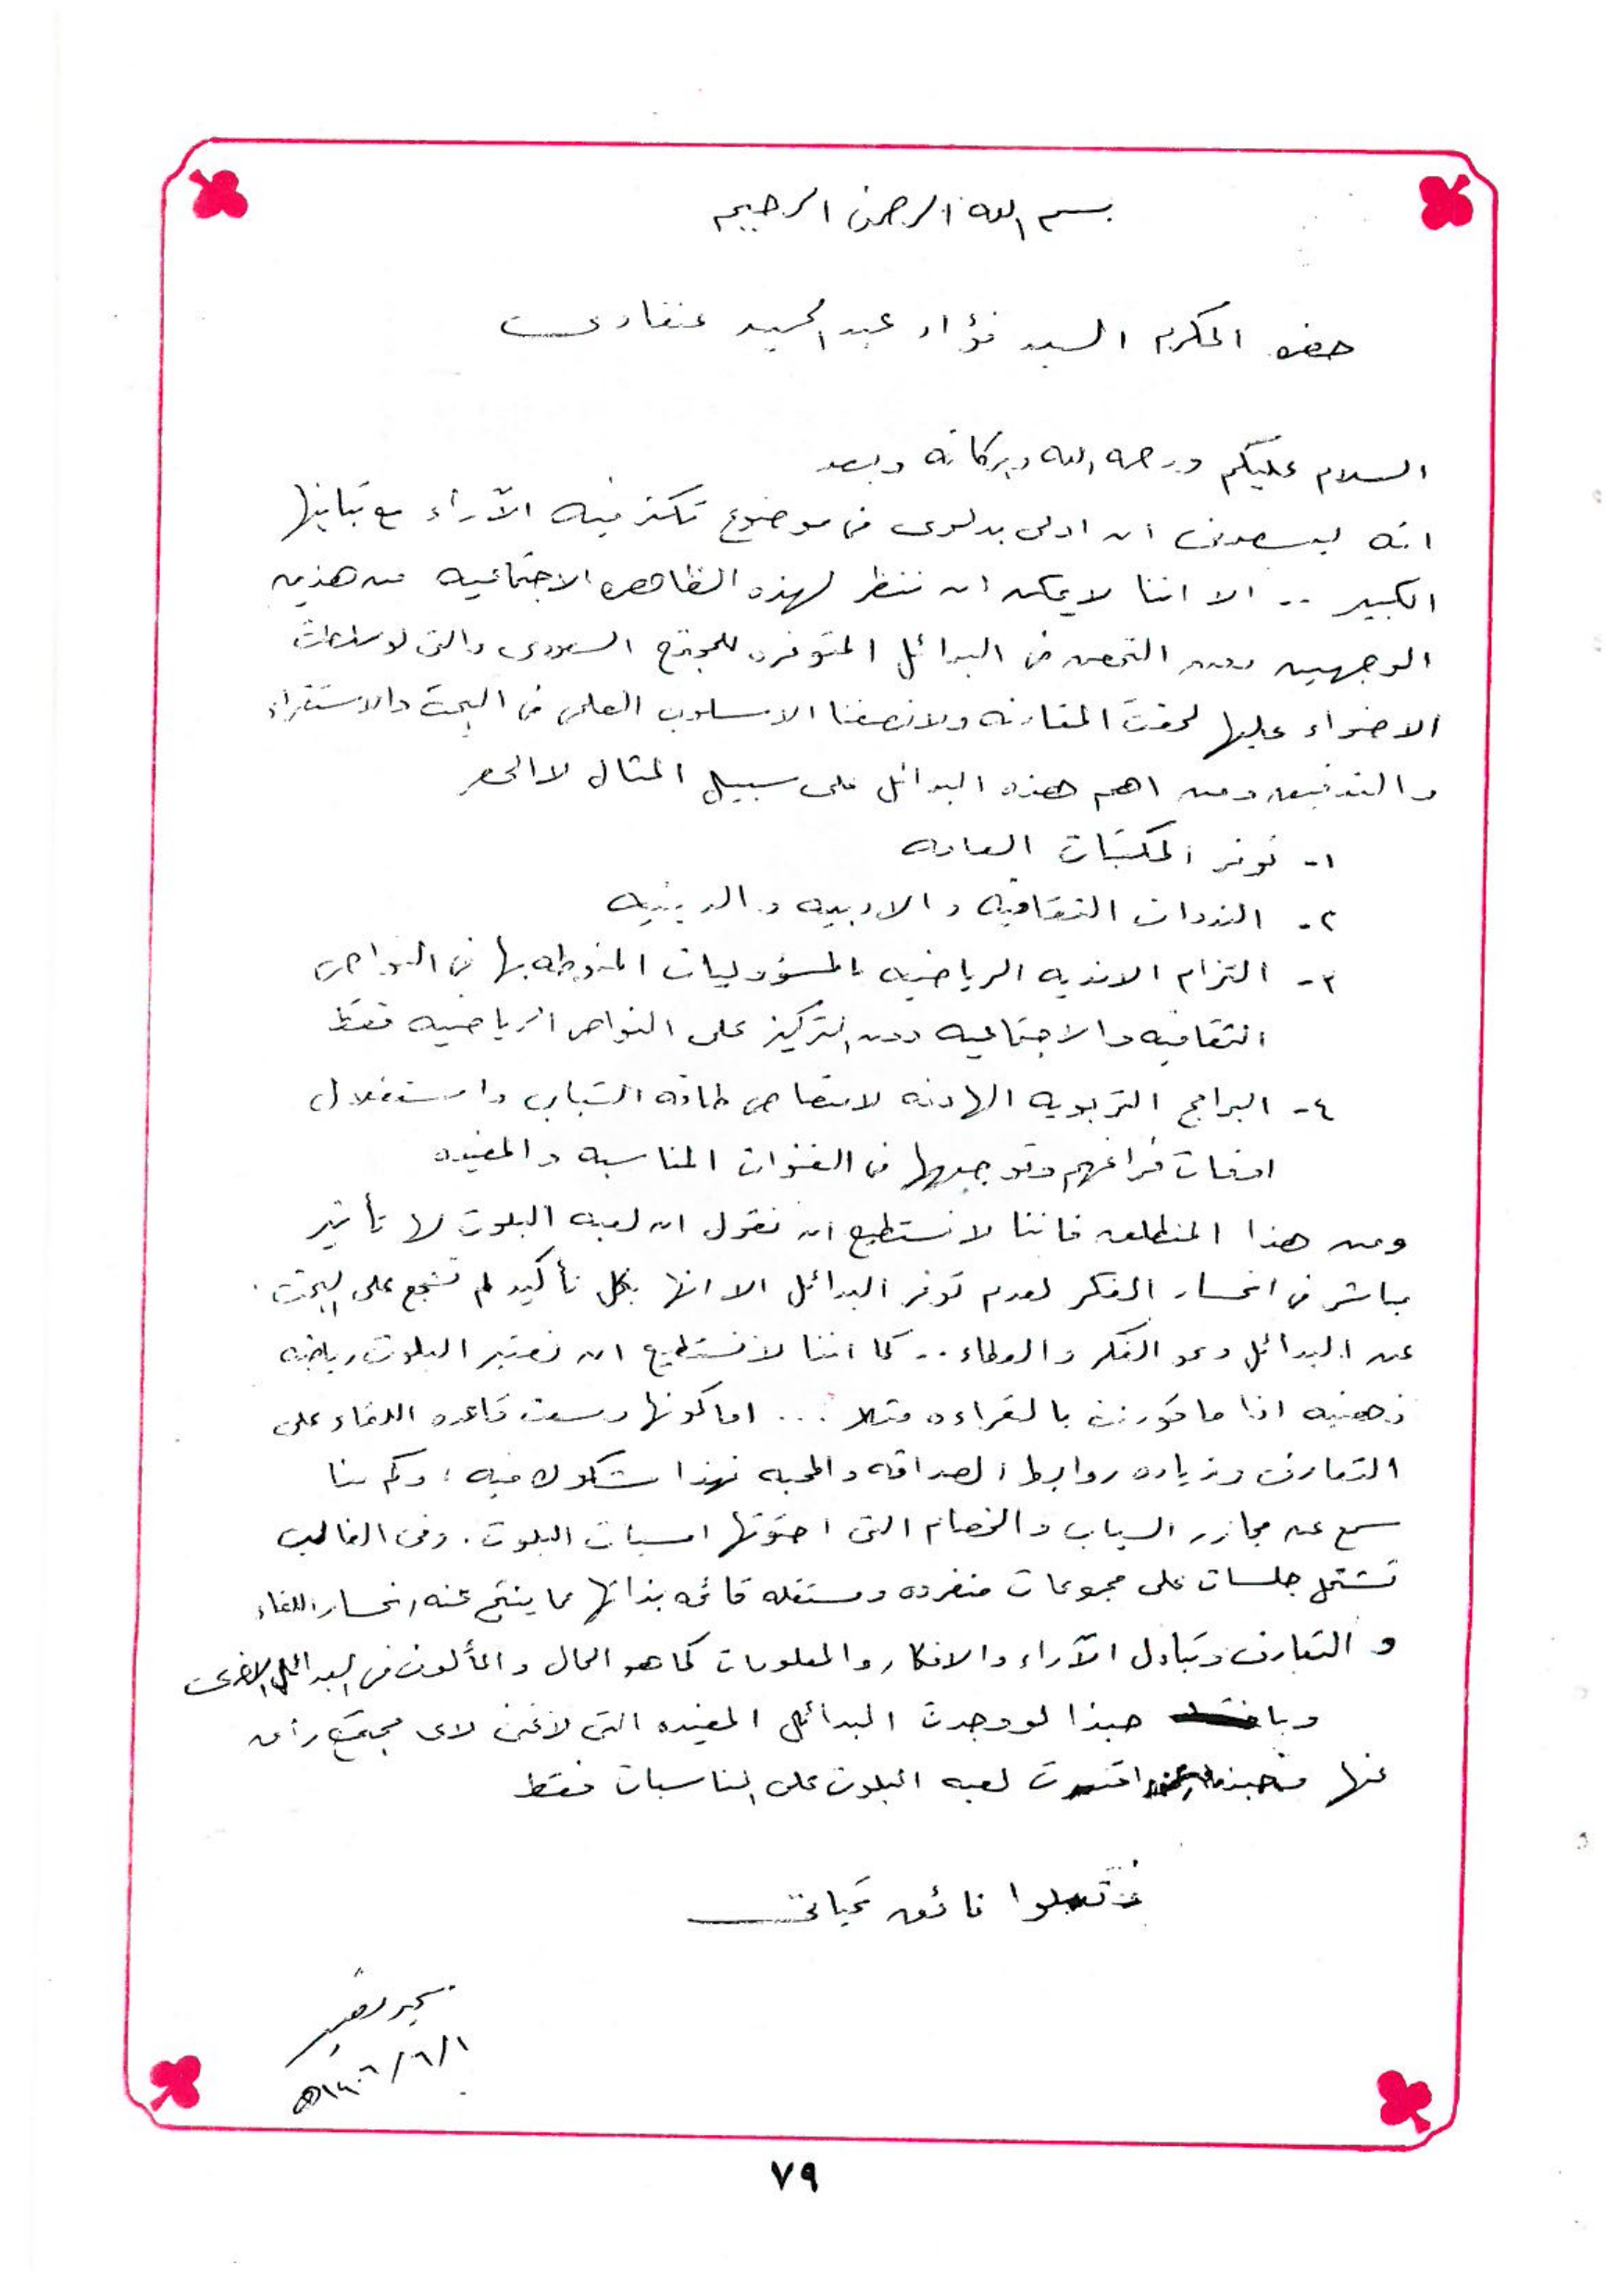 بسم الله الرحمن الرحيم
حضره المكرم السيد فؤاد عبد الحميد عنقاوى
السلام عليكم ورحمه الله وبركاته وبعد
انه ليسعدنى ان ادلى بدلوى فى موضوع تكثر فيه الآراء مع تباينها
الكبير .. الا اننا لا يمكن ان ننظر لهذه الظاهره الاجتماعيه من هذين
الوجهين دون التمعن فى البدائل المتوفره للمجتمع السعودى والتى لو سلطت
الاضواء عليها لحقت المقارنه ولانصفنا الاسلوب العلمى فى البحث والاستقراء
والتدقيق ومن اهم هذه البدائل على سبيل المثال لا الحصر
١- توفر المكتبات العامه
٢- الندوات الثقافيه والادبيه والدينيه
٣- التزام الانديه الرياضيه بالمسؤوليات المنوطه بها فى النواحى
الثقافيه والاجتماعيه دون التركيز على النواحى الرياضيه فقط
٤- البرامج التربويه الهادفه لامتصاص طاقه الشباب واستغلال
اوقات فراغهم وتوجيهها فى القنوات المناسبه والمفيده
ومن هذا المنطلق فاننا لا نستطيع ان نقول ان لعبه البلوت لها تأثير
مباشر فى انحسار الفكر لعدم توفر البدائل الا انها بكل تأكيد لم تشجع على البحث
عن البدائل ونمو الفكر والعطاء .. كما اننا لا نستطيع ان نعتبر البلوت رياضه
ذهنيه اذا ما قورنت بالقراءه مثلا ... اما كونها وسعت قاعده اللقاء على
التعارف وزياده روابط الصداقه والمحبه فهذا مشكوك فيه ؛ وكم منا
سمع عن مجازر السباب والخصام التى احتوتها امسيات البلوت . وفى الغالب
تشتمل جلسات على مجموعات منفرده ومستقله قائمه بذاتها مما ينتج عنه انحسار اللقاء
والتعارف وتبادل الآراء والافكار والمعلومات كما هو الحال والمألوف فى البدائل الاخرى
حبذا لو وجدت البدائل المفيده التى لا غنى لاى مجتمع راقى
عنها اقتصرت لعبه البلوت على المناسبات فقط
وتقبلوا فائق تحياتى
١/٦/١٤٠٦هـ
٧٩